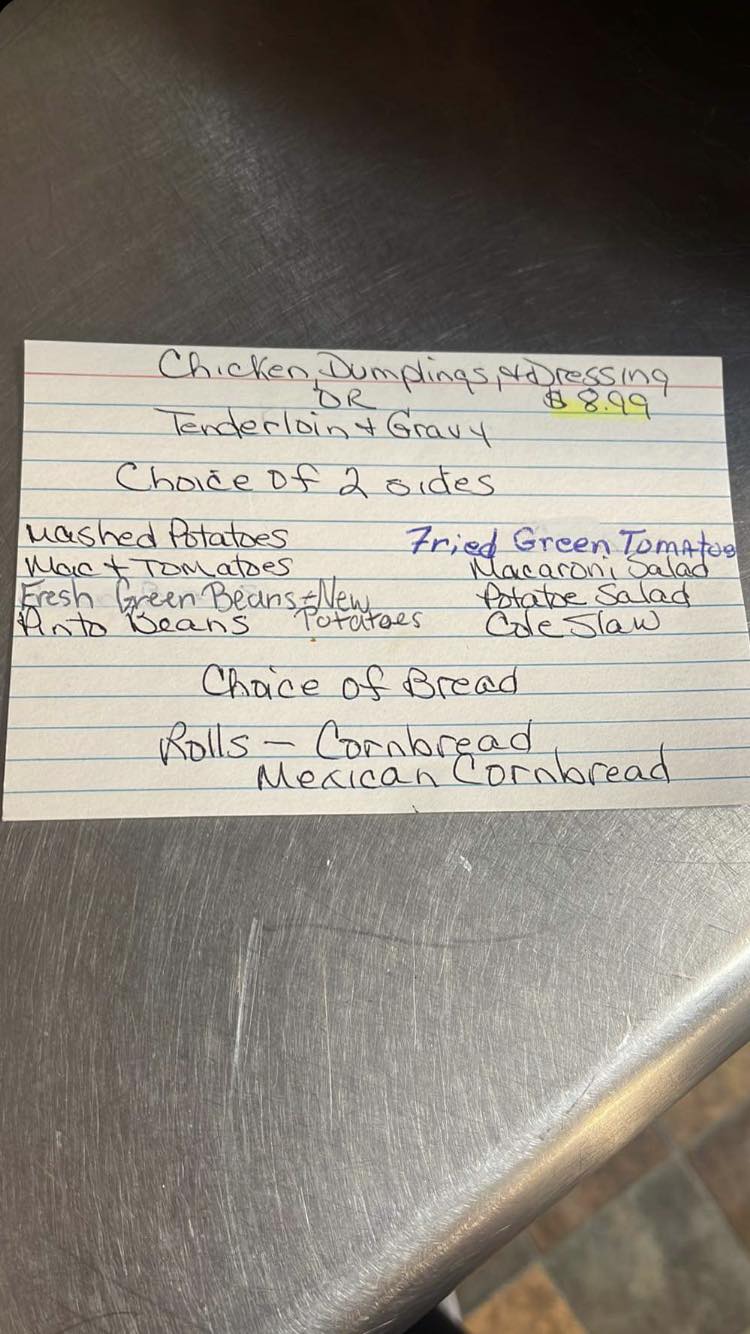 Chicken, Dumplings, & Dressing
OR $8.99
Tenderloin + Gravy
Choice of 2 sides
Mashed Potatoes Fried Green Tomatoe
Mac + Tomatoes Macaroni Salad
Fresh Green Beans + New Potatoes Potatoe Salad
Pinto Beans Cole Slaw
Choice of Bread
Rolls - Cornbread
Mexican Cornbread